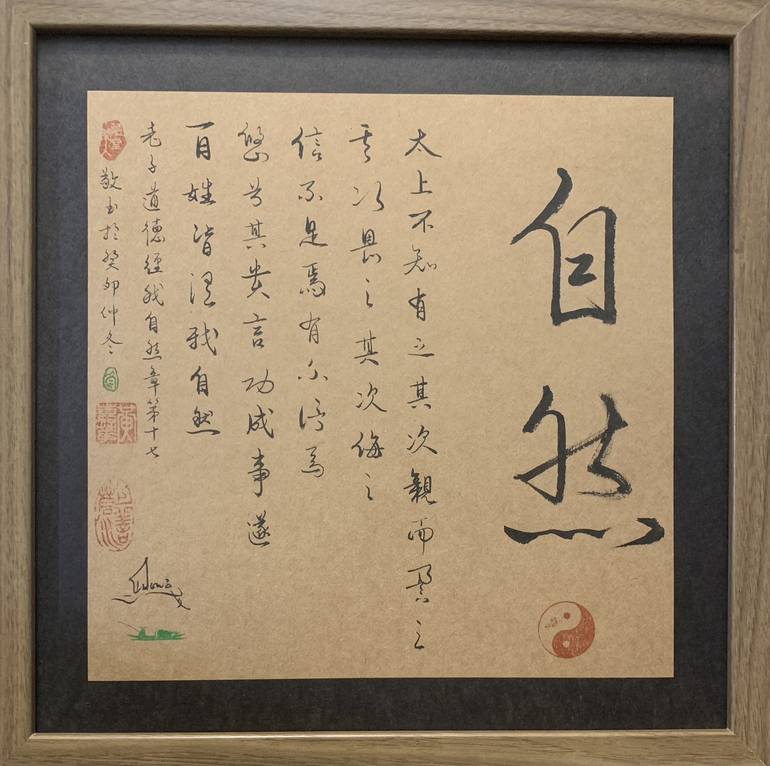 自然
太上不知有之其次親而譽之
其次畏之其次侮之
信不足焉有不信焉
悠兮其貴言功成事遂
百姓皆謂我自然
老子道德經我自然章第十七
敬書於癸卯仲冬
上善若水